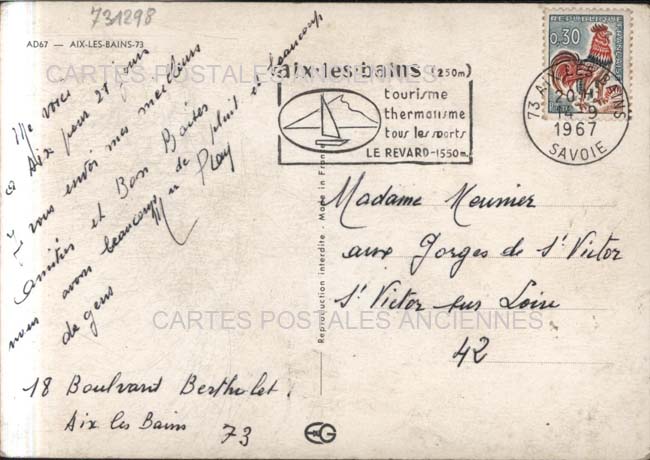 731298
AD67 — AIX-LES-BAINS-73
Me voici
a Aix pour 21 jours
Je vous envoi mes meilleurs
amitiés et Bon Baisés
nous avons beaucoup de pluit et beaucoup
de gens
M Play
18 Boulvard Bertholet.
Aix les Bains 73
Reproduction interdite - Made in France
aix-les-bains (250m)
tourisme
thermalisme
tous les sports
LE REVARD-1550m
REPUBLIQUE FRANÇAISE
0,30
73 AIX-LES-BAINS
14-9
1967
SAVOIE
Madame Meunier
aux Gorges de St Victor
St Victor sur Loire
42
CARTES POSTALES ANCIENNES
CARTES POSTALES ANCIENNES